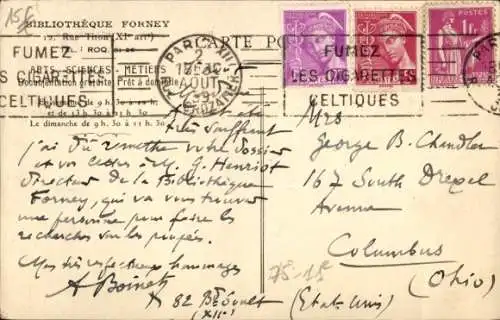 15f
BIBLIOTHÈQUE FORNEY
12, Rue Titon (XIe arrt)
TÉL. : ROQ.
CARTE PO
ARTS - SCIENCES - MÉTIERS
Documentation gratuite Prêt à domicile
de 9 h. 30 à 11 h. 30
et de 13 h. 30 à
Le dimanche de 9 h. 30 à 11 h. 30
FUMEZ
LES CIGARETTES
CELTIQUES
PARIS XII
AOUT
FUMEZ
LES CIGARETTES
CELTIQUES
POSTES
très souffrant
j'ai dû remettre votre dossier
et vos clichés à M. G. Henriot
directeur de la Bibliothèque
Forney, qui va vous trouver
une personne pour faire les
recherches sur les
Mes très respectueux hommages
A Boinet
82 Bd Soult
(XIIe)
Mrs
George B. Chandler
167 South Drexel
Avenue
Columbus
(Ohio)
(Etats Unis)
75-12